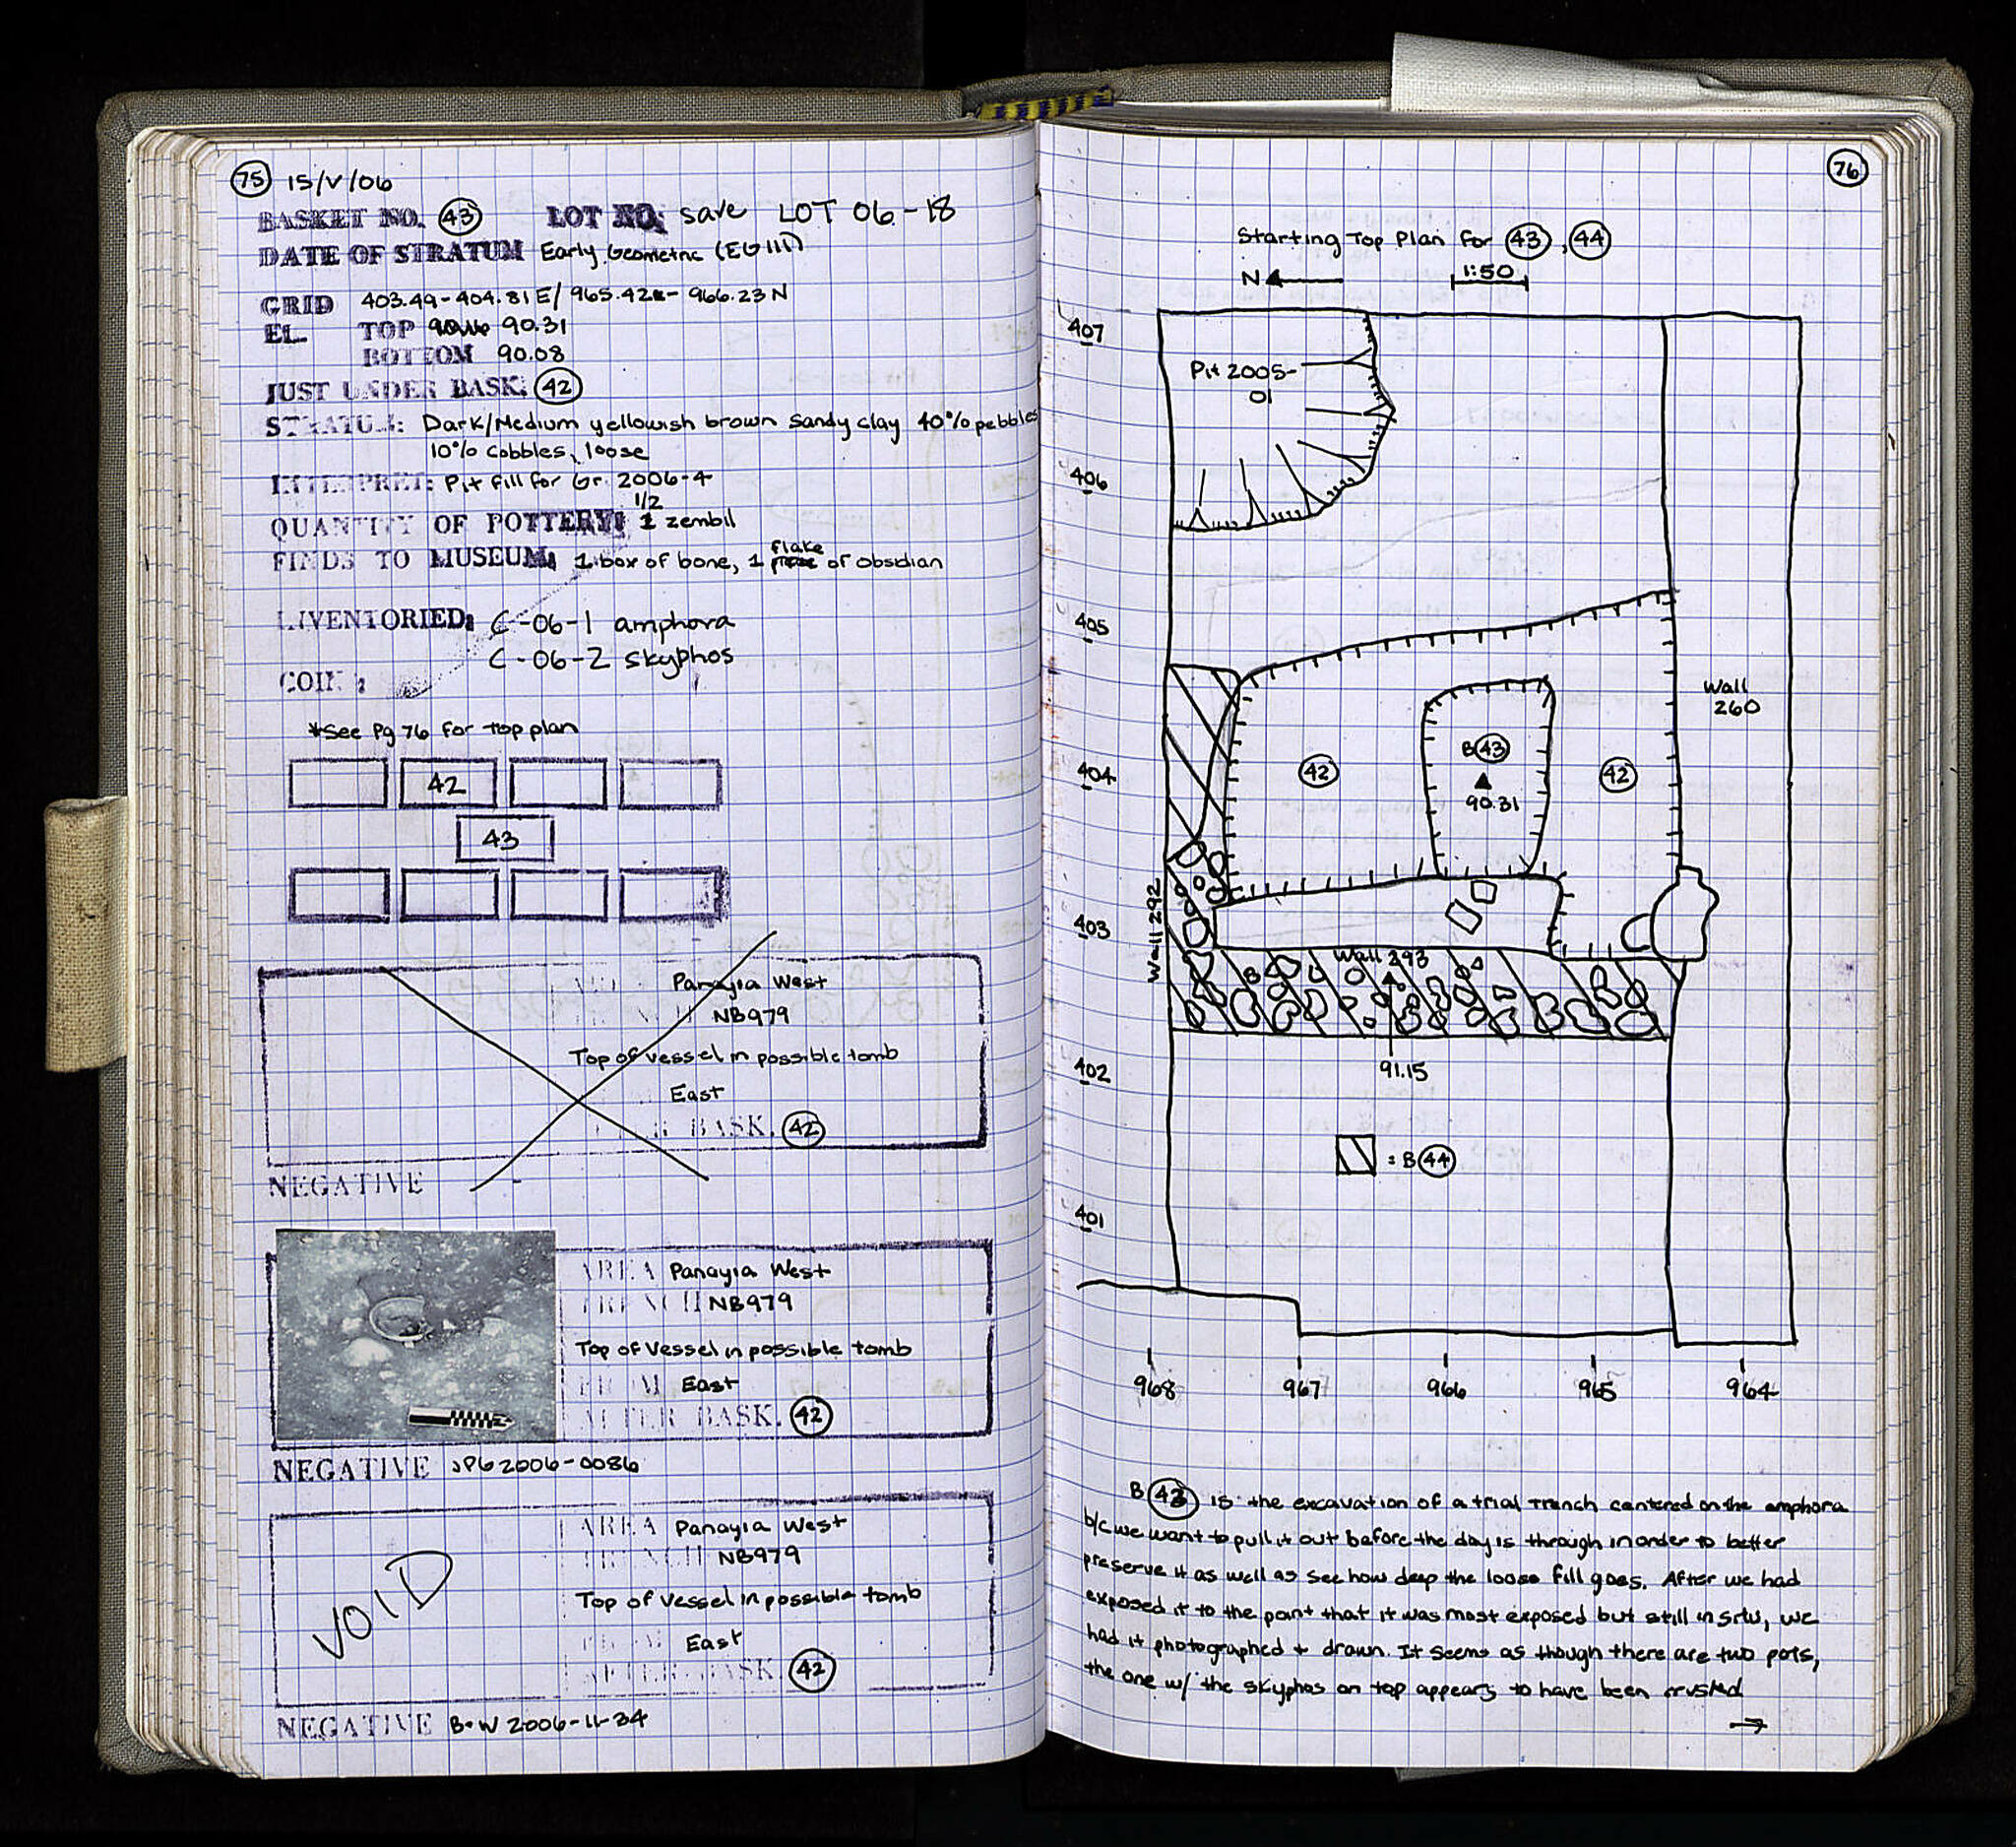 75 15/V/06
BASKET NO. 43 LOT NO: save LOT 06-18
DATE OF STRATUM Early Geometric (EG III)
GRID 403.49-404.81 E/ 965.42 - 966.23 N
EL. TOP 90.31
BOTTOM 90.08
JUST UNDER BASK. 42
STRATUM: Dark/Medium yellowish brown sandy clay 40% pebbles
10% cobbles, loose
INTERPRET: Pit fill for Gr. 2006-4
1/2
QUANTITY OF POTTERY: 1 zembil
flake
FINDS TO MUSEUM: 1 box of bone, 1 piece of obsidian
INVENTORIED: C-06-1 amphora
C-06-2 skyphos
COIN:
*See Pg 76 for top plan
42
43
Panayia West
NB979
Top of vessel in possible tomb
East
AFTER BASK. 42
NEGATIVE
AREA Panayia West
TRENCH NB979
Top of Vessel in possible tomb
FROM East
AFTER BASK. 42
NEGATIVE JPG 2006-0086
VOID
AREA Panayia West
TRENCH NB979
Top of Vessel in possible tomb
FROM East
AFTER BASK. 42
NEGATIVE B+W 2006-11-34
76
Starting Top Plan for 43, 44
N 1:50
407
Pit 2005-
01
406
405
Wall
260
B43
404 42 42
90.31
Wall 292
403
Wall 293
402 91.15
: B44
401
968 967 966 965 964
B43 is the excavation of a trial trench centered on the amphora
b/c we want to pull it out before the day is through in order to better
preserve it as well as see how deep the loose fill goes. After we had
exposed it to the point that it was most exposed but still in situ, we
had it photographed + drawn. It seems as though there are two pots,
the one w/ the skyphos on top appears to have been crushed
→